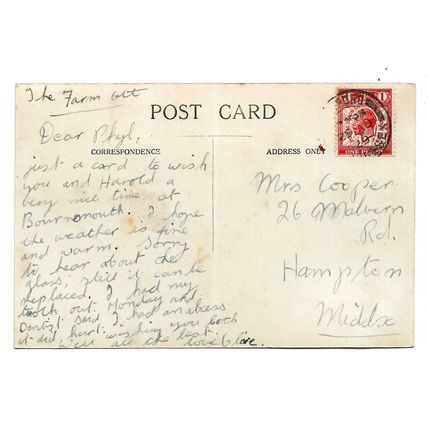 The Farm Cott
POST CARD
CORRESPONDENCE
ADDRESS ONLY
1
ONE PENNY
Dear Phyl.
just a card to wish
you and Harold a
very nice time at
Bournemouth. I hope
the weather is fine
and warm. Sorry
to hear about the
glass, still it can be
replaced. I had my
tooth out. Monday and
Dentist said I had an abcess
it did hurt. wishing you both
all the best. love
Mrs Cooper
26 Malvern
Rd.
Hampton
Middx